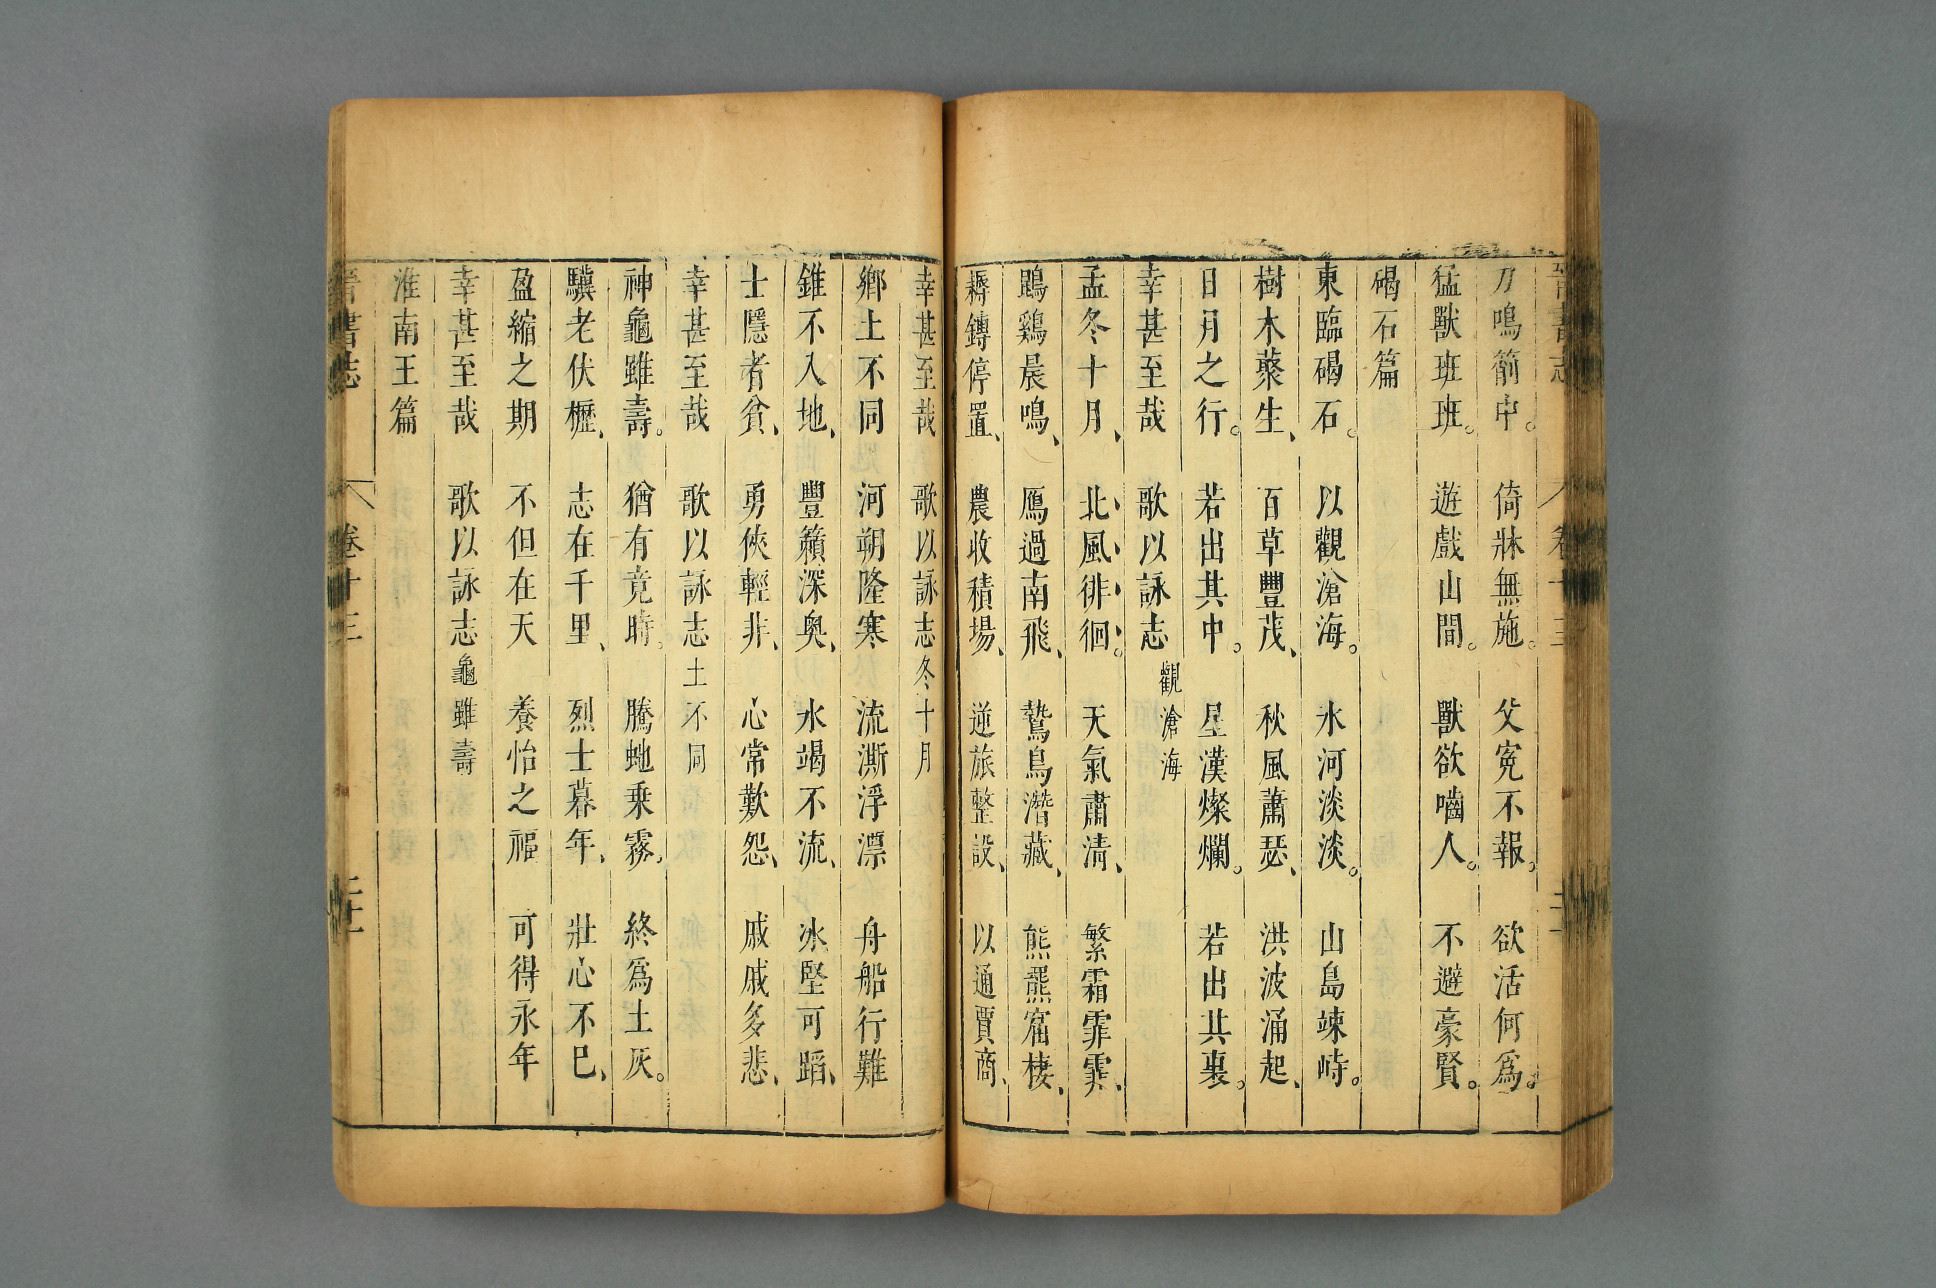 乃鳴箭中。 倚牀無施。 父寃不報。 欲活何爲。
猛獸班班。 遊戲山間。 獸欲嚙人。 不避豪賢。
碣石篇
東臨碣石。 以觀滄海。 水河淡淡。 山島竦峙。
樹木藂生、 百草豐茂、 秋風蕭瑟、 洪波涌起、
日月之行。 若出其中。 星漢燦爛。 若出其裏。
幸甚至哉 歌以詠志 觀滄海
孟冬十月、 北風徘徊。 天氣肅清、 繁霜霏霏、
鵾鷄晨鳴、 鴈過南飛、 鷙鳥潛藏、 熊羆窟棲、
耨鏄停置、 農收積場、 逆旅整設、 以通賈商、
幸甚至哉 歌以詠志 冬十月
鄉土不同 河朔隆寒 流澌浮漂 舟船行難
錐不入地、 豐籟深奧、 水竭不流、 冰堅可蹈、
士隱者貧、 勇俠輕非、 心常歎怨、 戚戚多悲、
幸甚至哉 歌以詠志 土不同
神龜雖壽。 猶有竟時。 騰虵乗霧。 終爲土灰。
驥老伏櫪、 志在千里、 烈士暮年、 壯心不已、
盈縮之期 不但在天 養怡之福 可得永年
幸甚至哉 歌以詠志 龜雖壽
淮南王篇
晉書志 卷十三